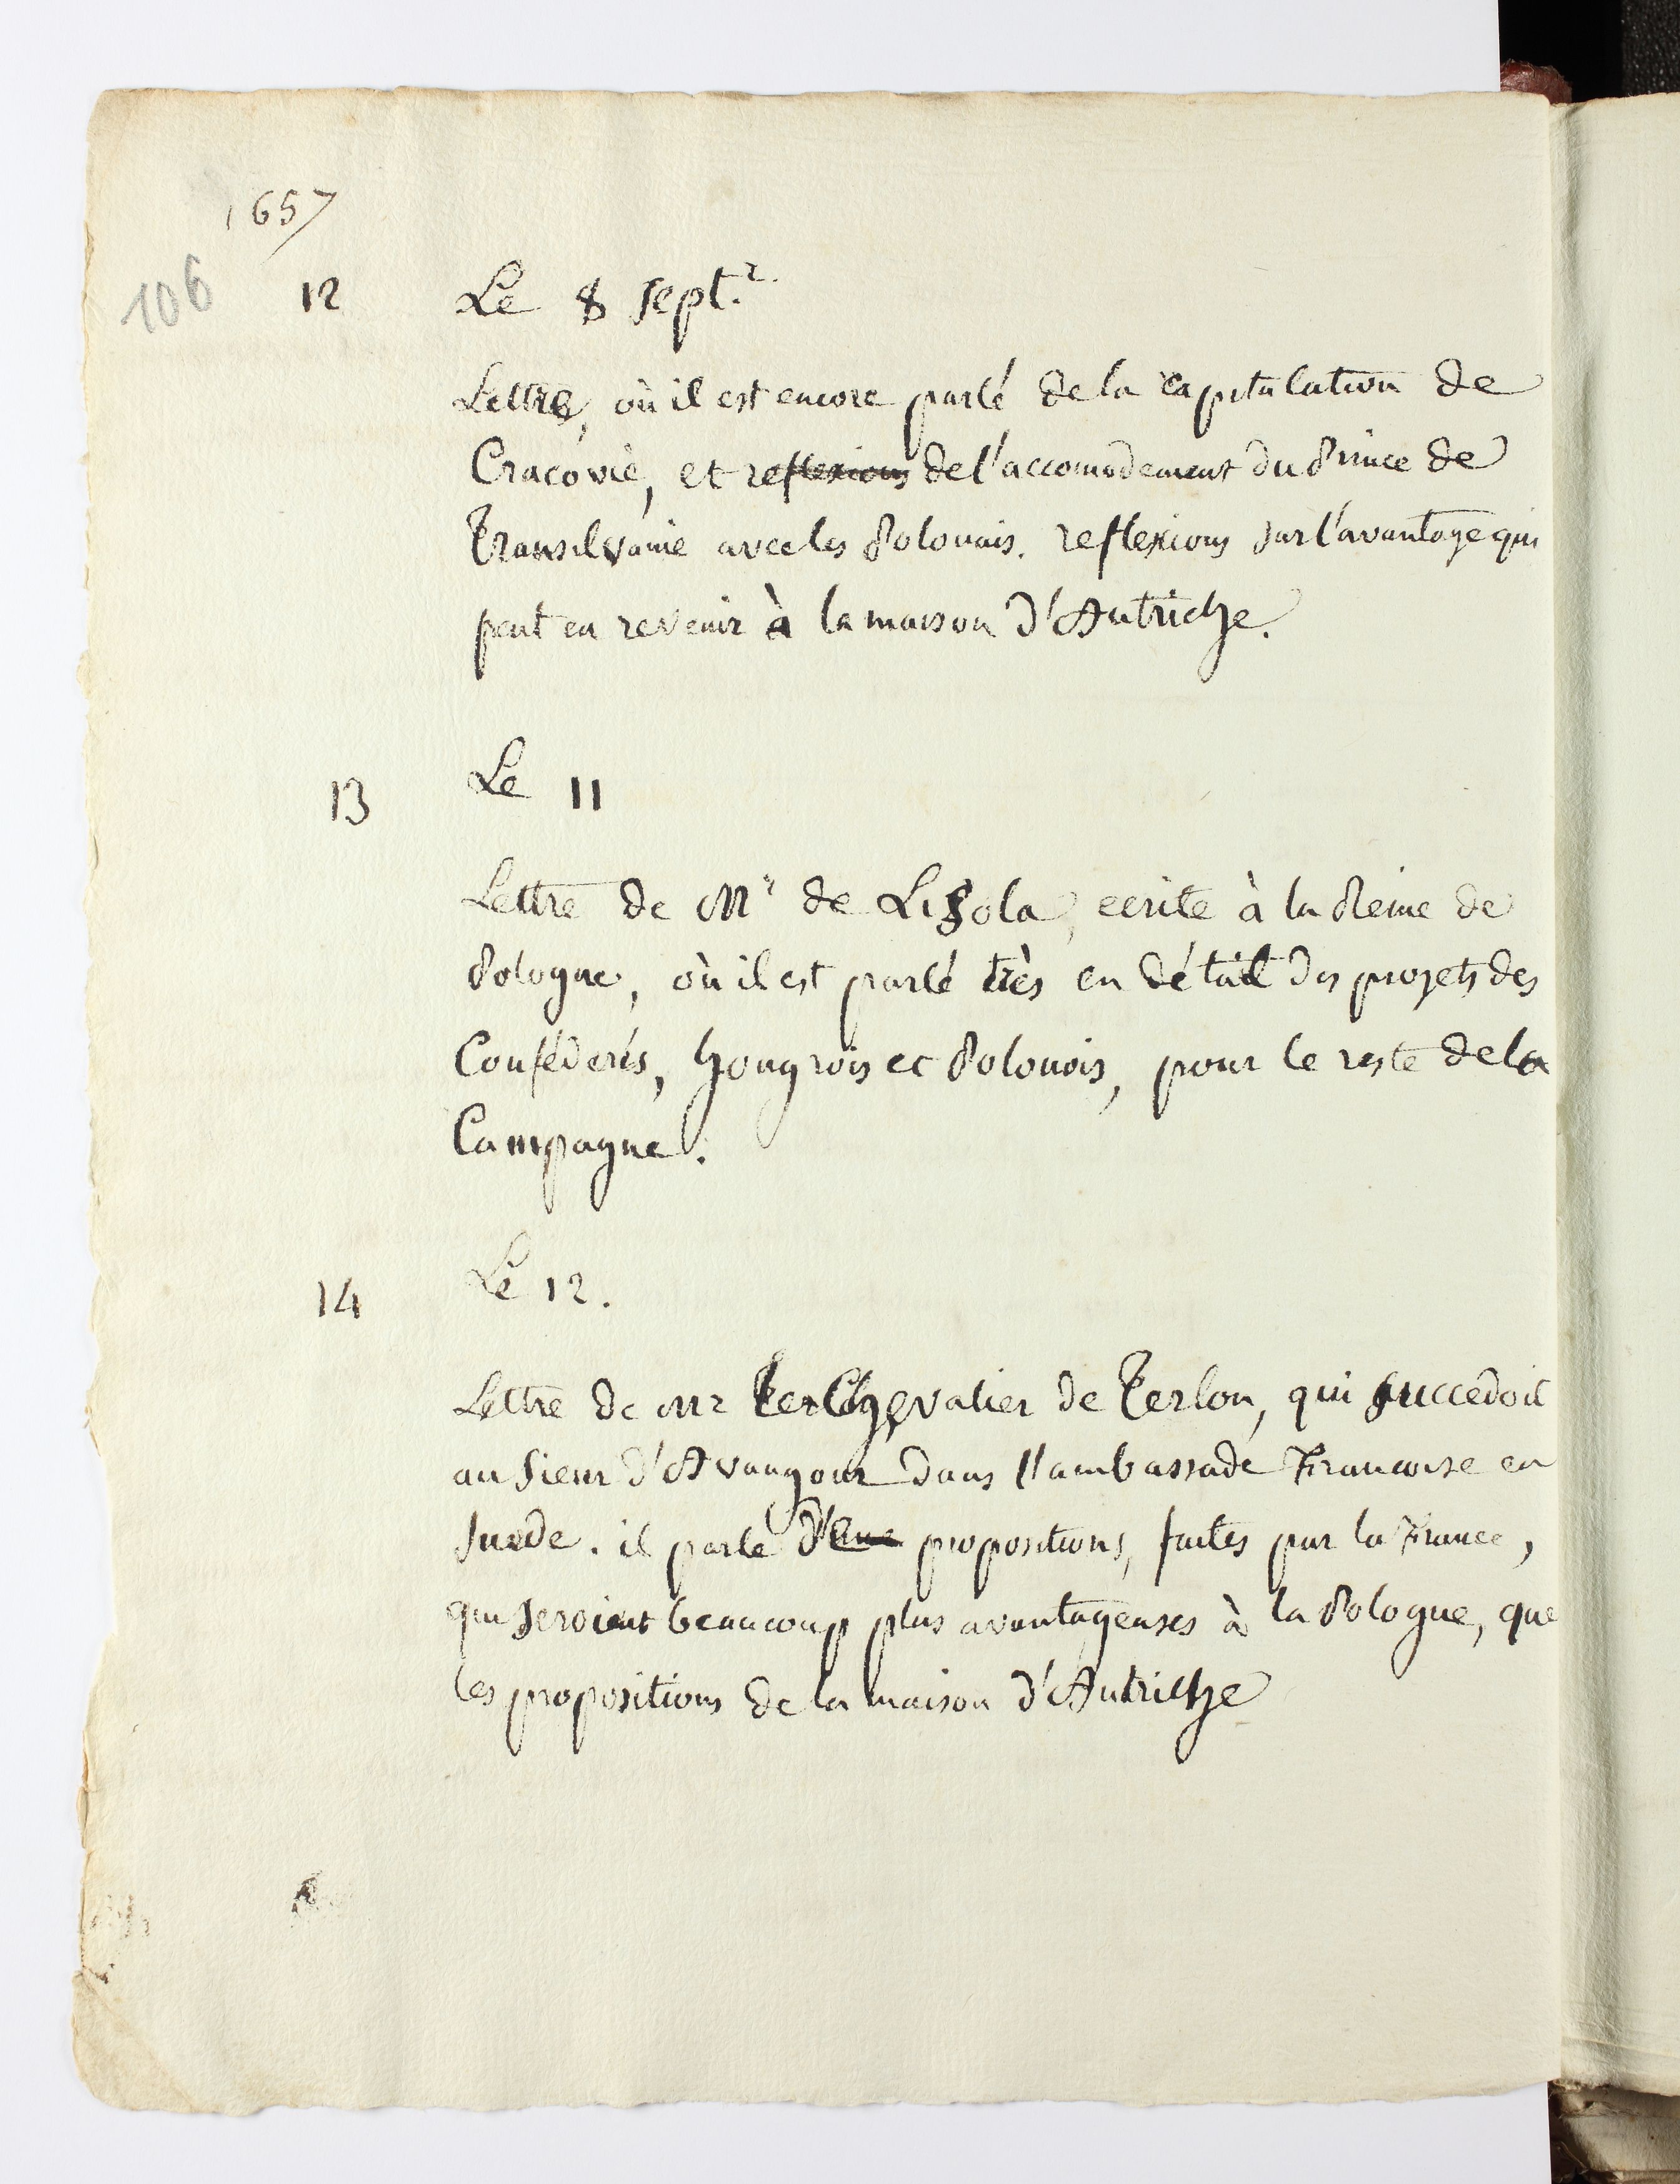 1657
106
12 Le 8 sept.r
Lettre, où il est encore parlé de la capitulation de
Cracovie, et reflexions de l'accomodement du Prince de
Transilvanie avec les Polonais. reflexions sur l'avantage qui
peut en revenir à la maison d'Autriche.
13 Le 11
Lettre de Mr de Lisola, ecrite à la Reine de
Pologne, où il est parlé très en détail des projets des
Conféderés, hongrois et Polonois, pour le reste de la
Campagne.
14 Le 12.
Lettre de Mr le Chevalier de Terlon, qui succedoit
au Sieur d'Avaugour dans l'ambassade Francoise en
Suede. il parle d'une propositions, faites par la France,
qui seroient beaucoup plus avantageuses à la Pologne, que
les propositions de la maison d'Autriche